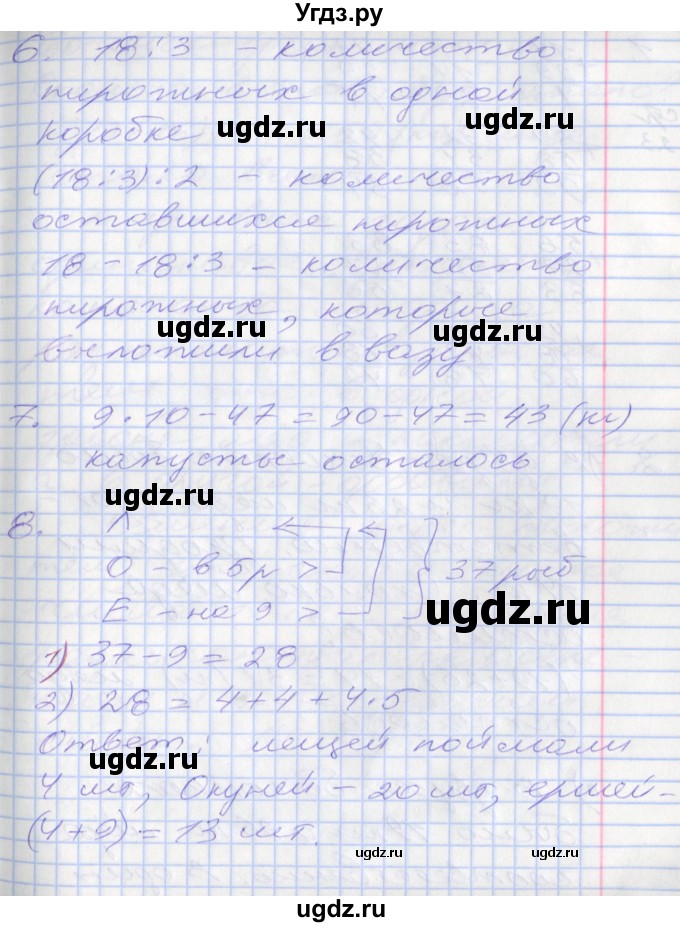 Угдз.ру
6. 18:3 – количество
пирожных в одной
коробке
ugdz.ru
ugdz.ru
(18:3):2 – количество
оставшихся пирожных
18 – 18:3 – количество
пирожных, которые
ugdz.ru
ugdz.ru
выложили в вазу
7. 9·10–47=90–47=43 (кг)
капусты осталось
ugdz.ru
8. Л
О – в 5р > } 37 рыб
Е – на 9 >
ugdz.ru
1) 37–9=28
2) 28=4+4+4·5
Ответ: лещей поймали
ugdz.ru
4 шт, Окуней – 20 шт, ершей –
(4+9)=13 шт.
ugdz.ru
ugdz.ru
ugdz.ru